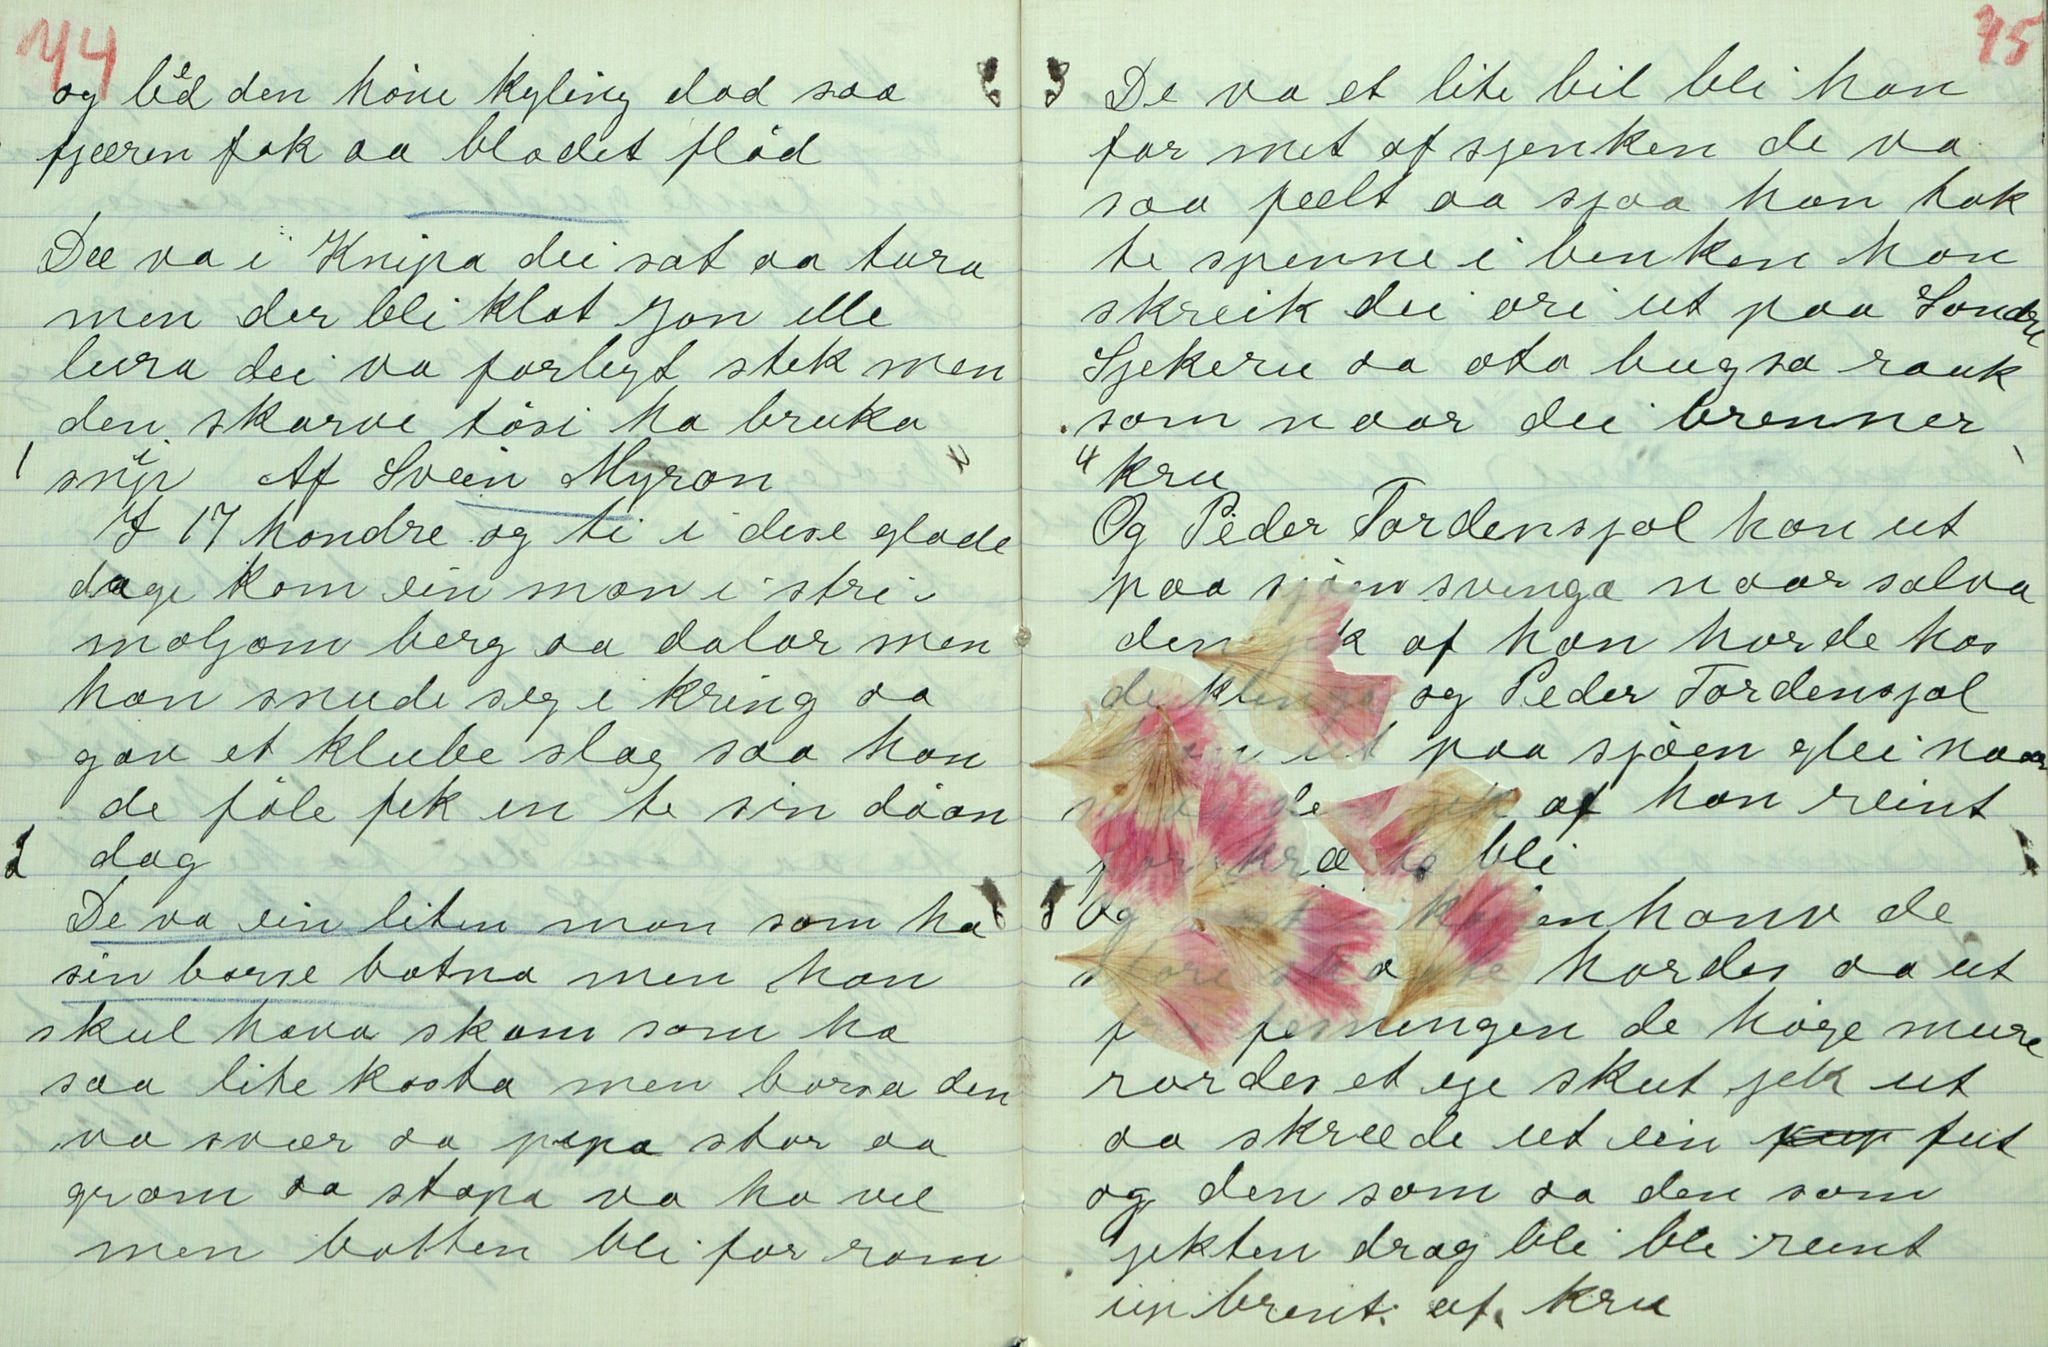 44
og léd den höne kyling dod saa
fjæren fok aa blodet flöd
Dee va i Knipa dei sat aa tura
men der blei klat Jon ille
lura dei va forlegt stek men
den skarve tösi ha bruka
1 snip Af Svein Myran
I 17 hondre og ti i dise glade
dage kom ein man i stri
maljom berg aa dalar men
han snude seg i kring aa
gav et klube slag saa han
de föle fek en te sin döan
2 dag
De va ein liten man som ha
sin borse batna men han
skul hava skam som ha
saa lite kosta men borsa den
va svær aa pipa stor aa
gram aa stapa va ho vel
men botten bli for ram
75
3 De va et lite bil bli han
for met af sjenken de va
saa feelt aa sjaa han tok
te spenne i benken han
skreik dei ori ut paa Sondre
Sjekeru aa ota bugsa rauk
som naar dei brenner
4 kru
Og Peder Tordensjol han ut
paa sjöen svinga naar salva
den jek af han horde hos
de klinga og Peder Tordensjol
ut paa sjöen glei naar
den jek af han reint
bli
Og hanv de
hordes aa ut
festningen de höge mure
rordes et eje skut jek ut
aa skreede ut ein fut
og den som aa den som
jekten drag bli bli reint
up brent af kru